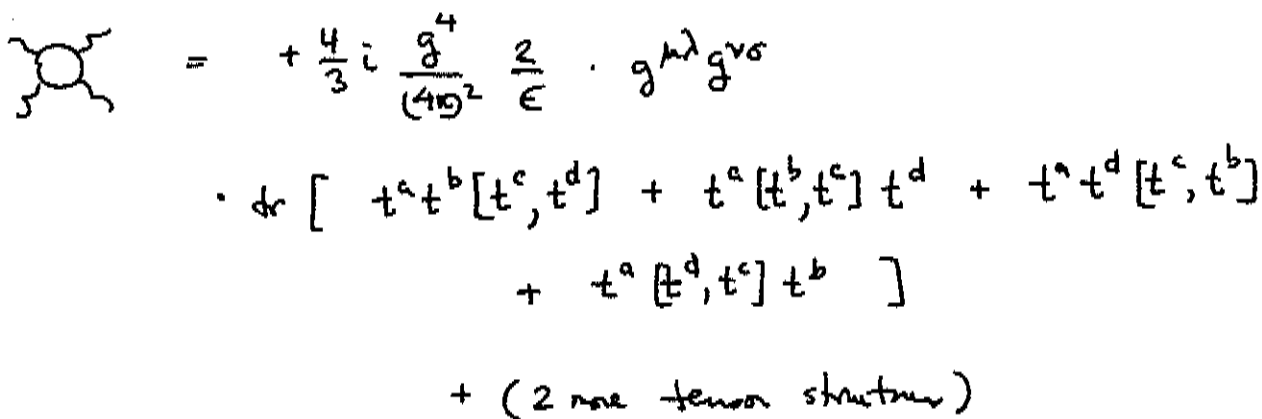 = + 4/3 i g^4/(4π)^2 2/ϵ · g^{μλ} g^{νσ}
· tr [ t^a t^b [t^c, t^d] + t^a [t^b, t^c] t^d + t^a t^d [t^c, t^b]
+ t^a [t^d, t^c] t^b ]
+ (2 more tensor structures)